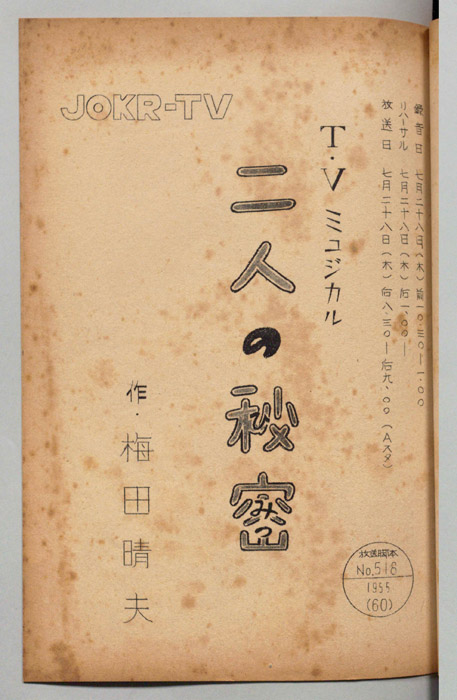 録音日 七月二十八日(木)前一〇.三〇―一.〇〇
リハーサル 七月二十八日(木)后一.〇〇―
放送日 七月二十八日(木)后八.三〇―后九.〇〇(Aスタ)
JOKR-TV
T・Vミュジカル
二人の秘密
みつ
作・梅田晴夫
放送脚本
No.518
1955
(60)